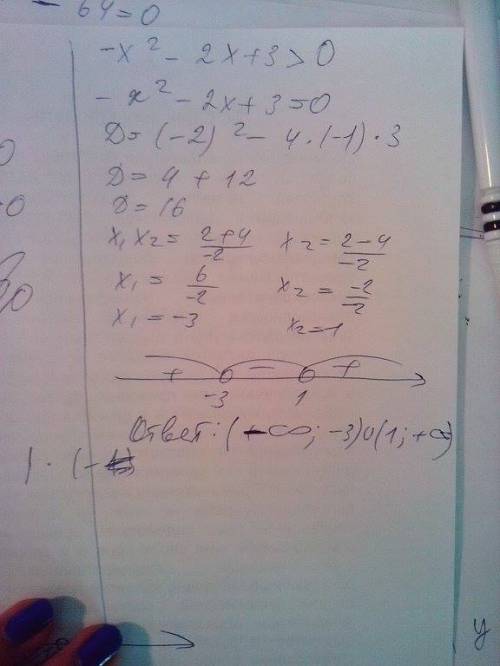 - 64 = 0
-x² - 2x + 3 > 0
- x² - 2x + 3 = 0
D = (-2)² - 4 · (-1) · 3
D = 4 + 12
D = 16
x₁ x₂ = (2+4)/-2    x₂ = (2-4)/-2
x₁ = 6/-2    x₂ = -2/-2
x₁ = -3    x₂ = 1
+ - +
-3 1
Ответ: (-∞; -3) ∪ (1; +∞)
y